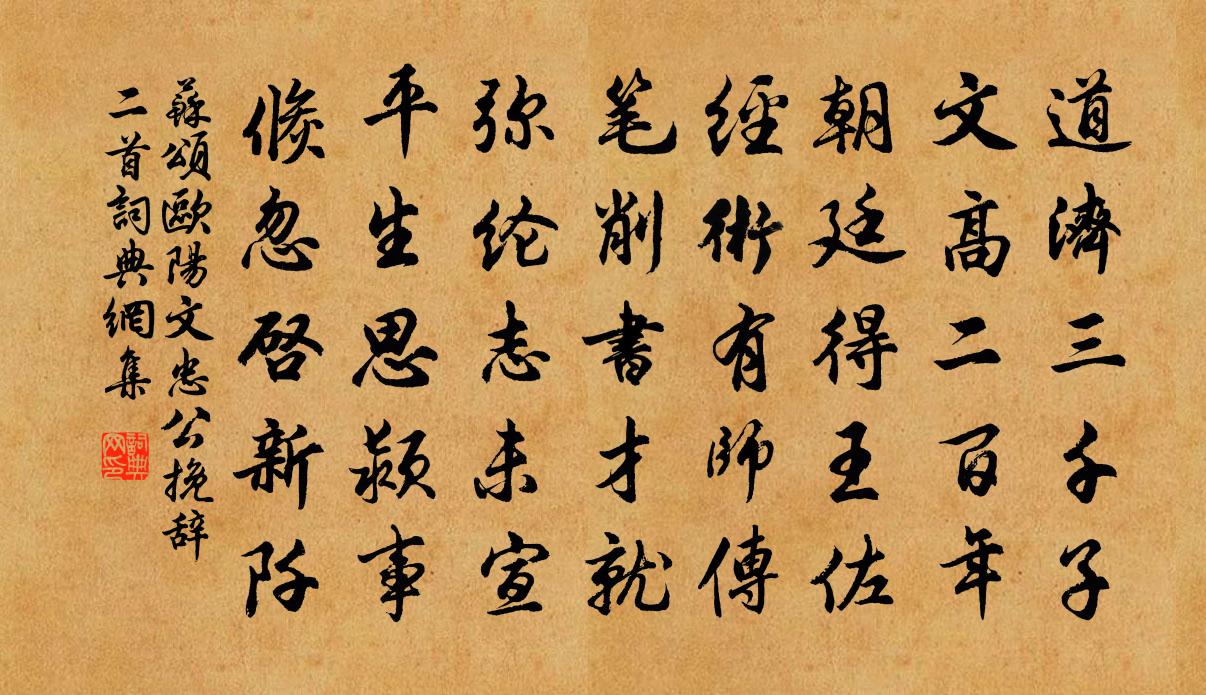 道濟三千子
文高二百年
朝廷得王佐
經術有師傳
笔削書才就
弥纶志未宣
平生思颍事
倐忽启新阡
蘇頌歐陽文忠公挽辞
二首詞典網集
詞典网印